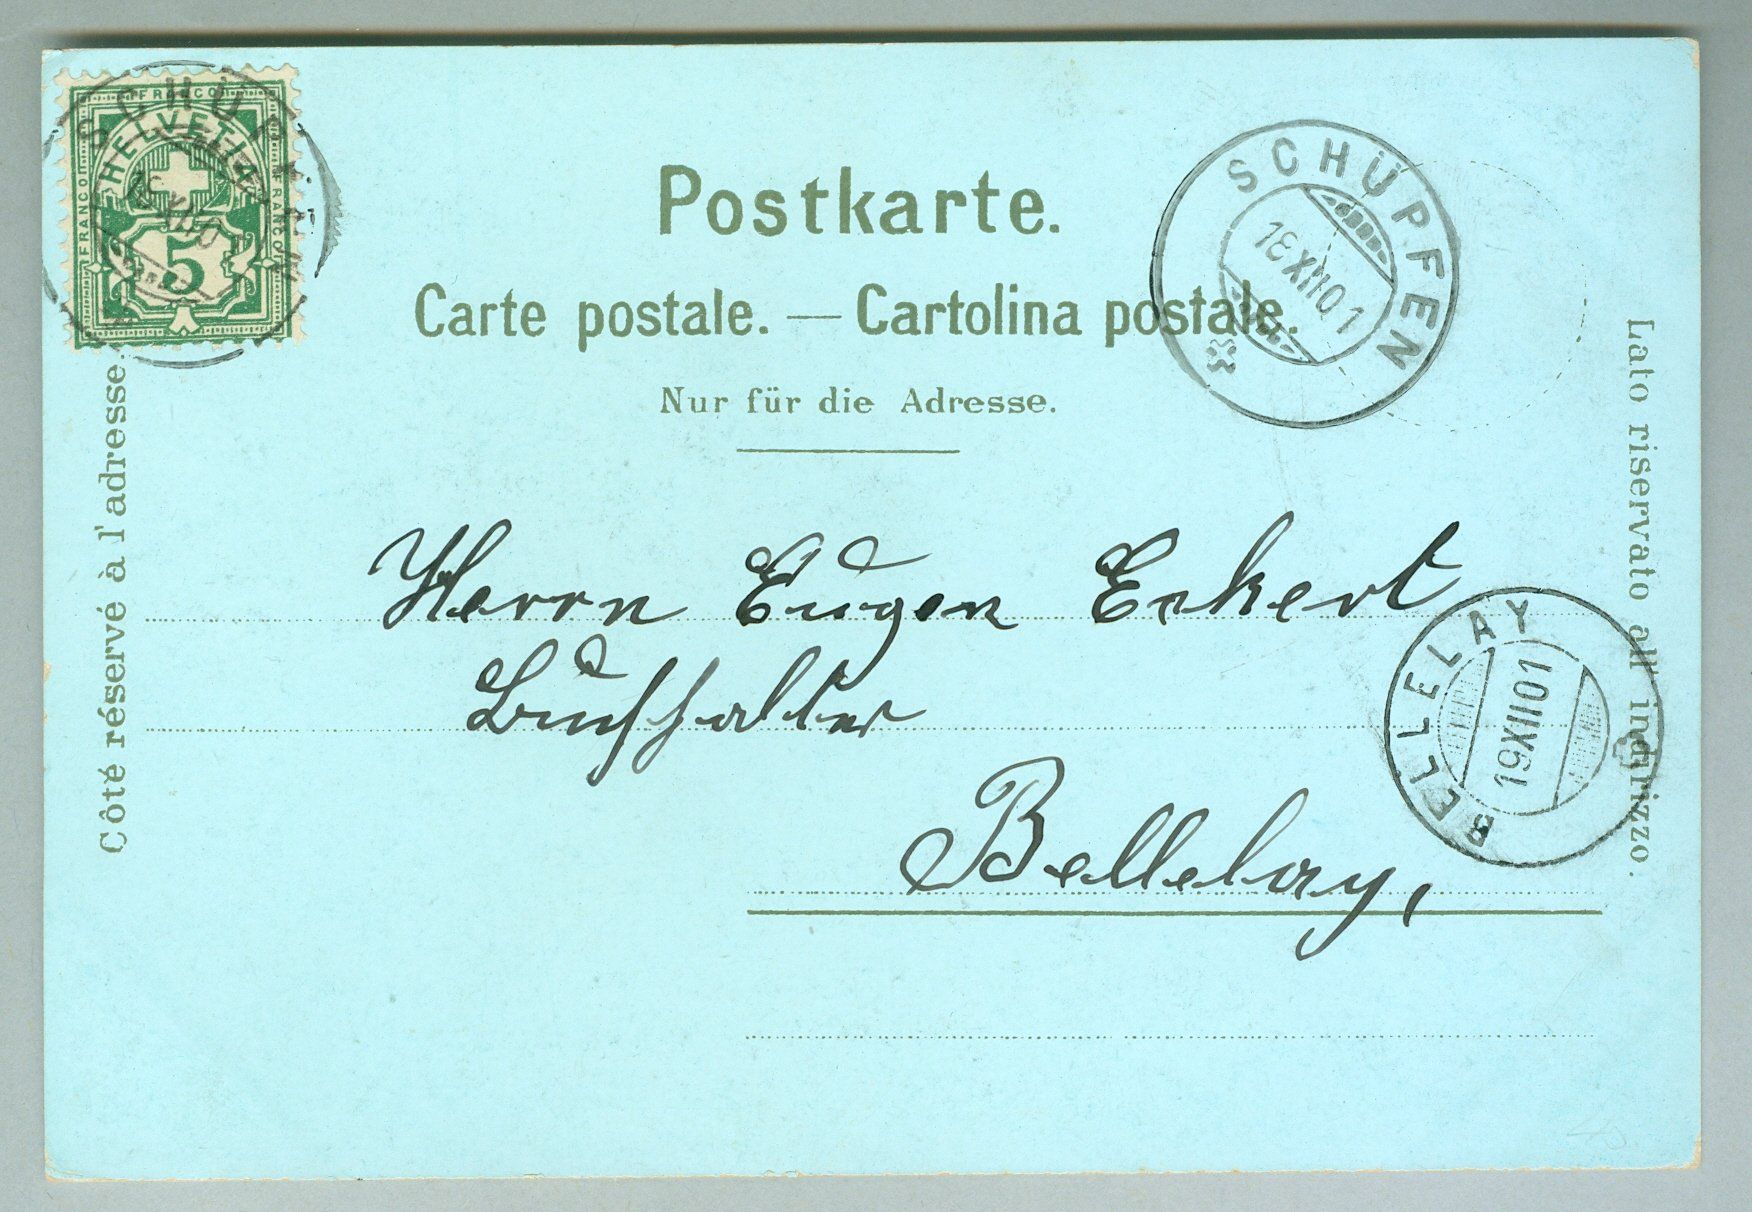 FRANCO
FRANCO
FRANCO
HELVETIA
5
SCHÜPFEN
Postkarte.
SCHÜPFEN
18XII01
Carte postale. — Cartolina postale.
Nur für die Adresse.
Côté réservé à l'adresse.
Lato riservato all' indirizzo.
Herrn Eugen Eckert
Buchhalter
BELLELAY
19XII01
Bellelay,